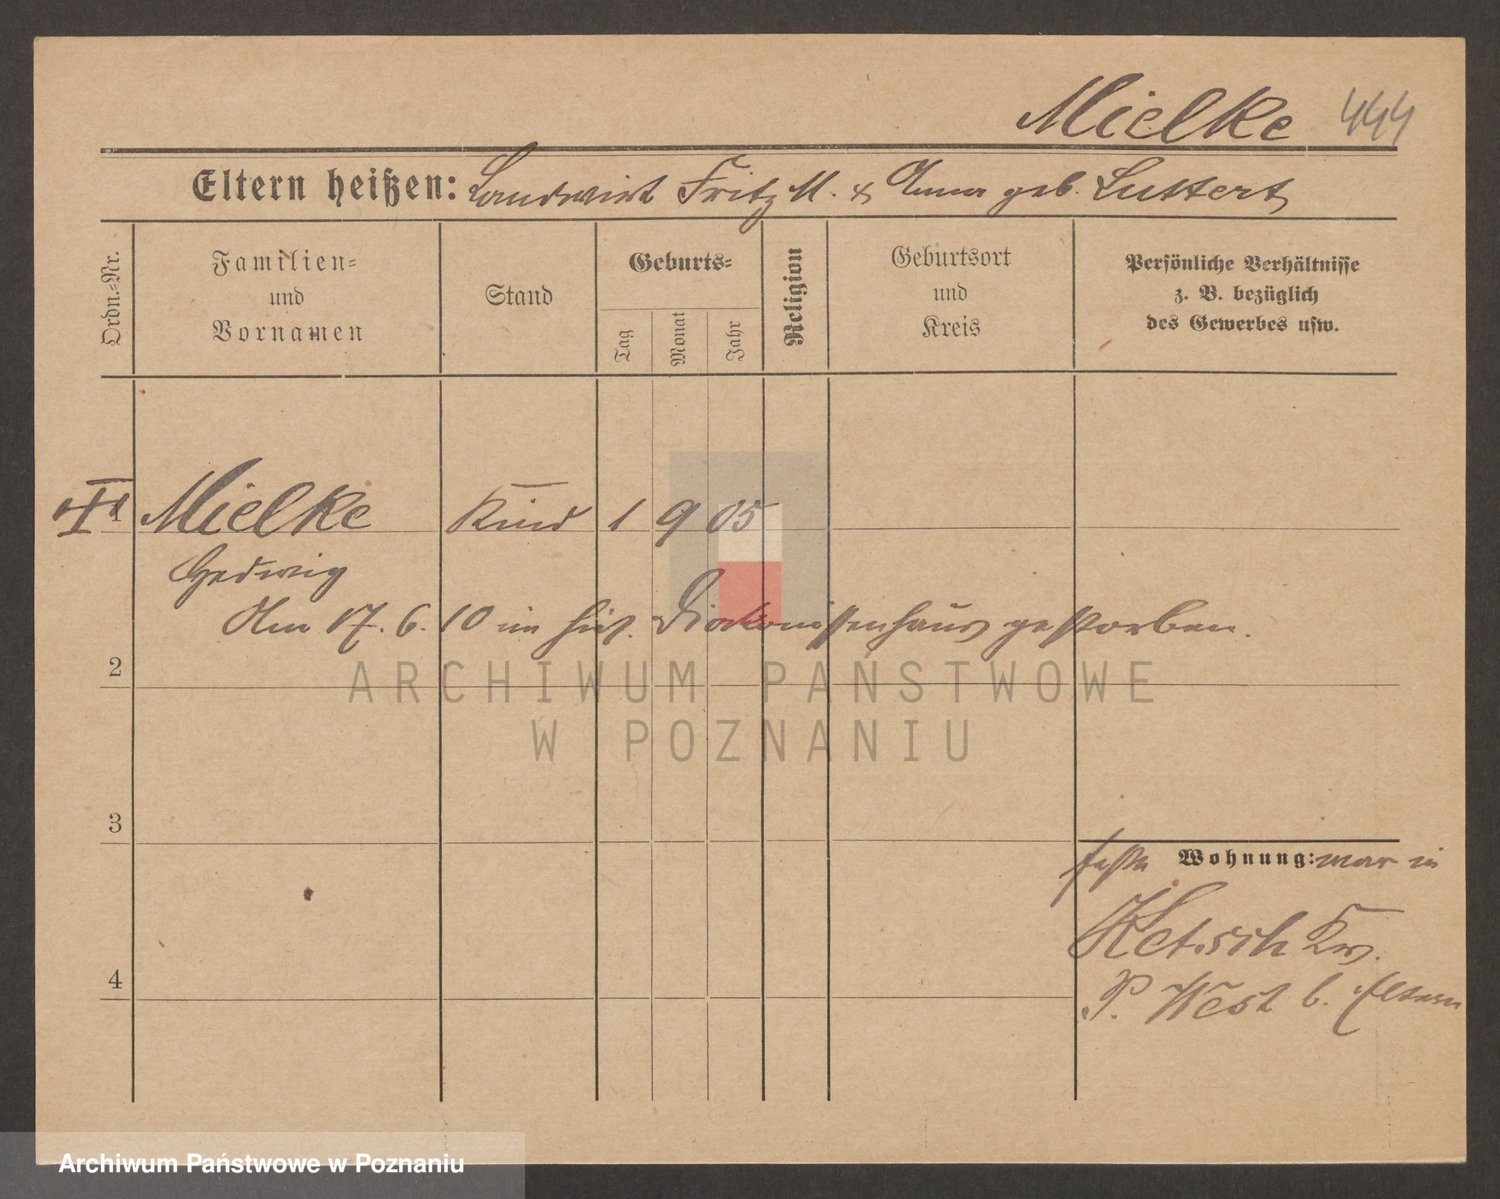 Mielke 444
Eltern heißen: Landwirt Fritz M. & Anna geb. Luttert
Ordn.-Nr.
Familien-
und
Vornamen
Stand
Geburts-
Tag
Monat
Jahr
Religion
Geburtsort
und
Kreis
Persönliche Verhältnisse
z. B. bezüglich
des Gewerbes usw.
1 Mielke Kind 1 9 05
Hedwig
Am 17. 6. 10 im hies. Diakonissenhaus gestorben.
2
ARCHIWUM PAŃSTWOWE
W POZNANIU
3
feste Wohnung: war in
Ketsch Krs.
P. West b. Eltern
4
Archiwum Państwowe w Poznaniu